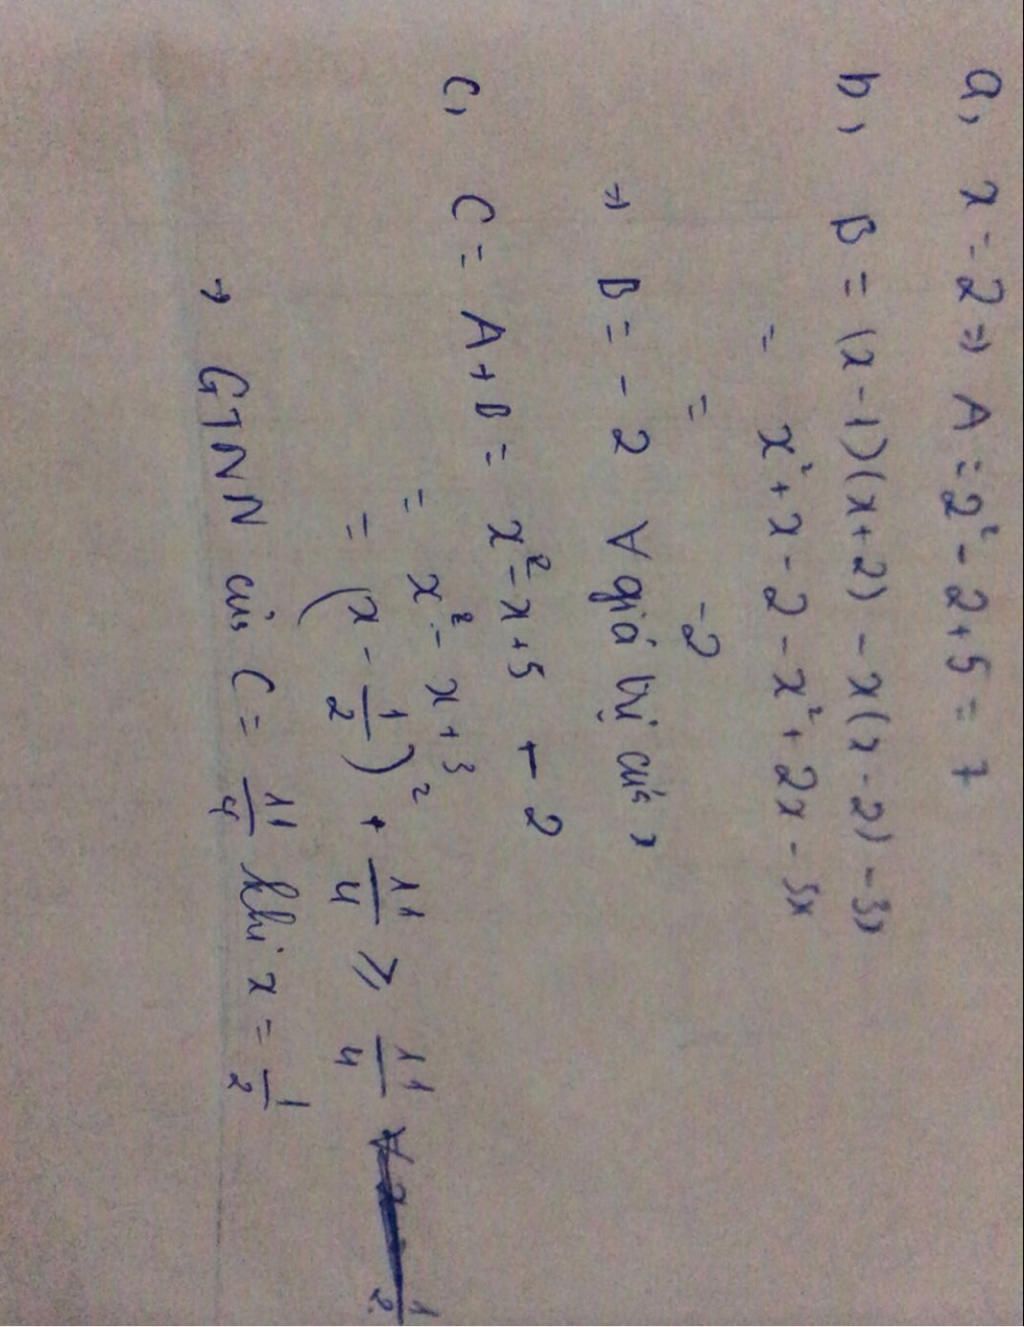 a, x = 2 => A = 2² - 2 + 5 = 7
b, B = (x - 1)(x + 2) - x(x - 2) - 3x
= x² + x - 2 - x² + 2x - 3x
= -2
=> B = - 2 ∀ giá trị của x
c, C = A + B = x² - x + 5 - 2
= x² - x + 3
= (x - 1/2)² + 11/4 ≥ 11/4
→ GTNN của C = 11/4 khi x = 1/2